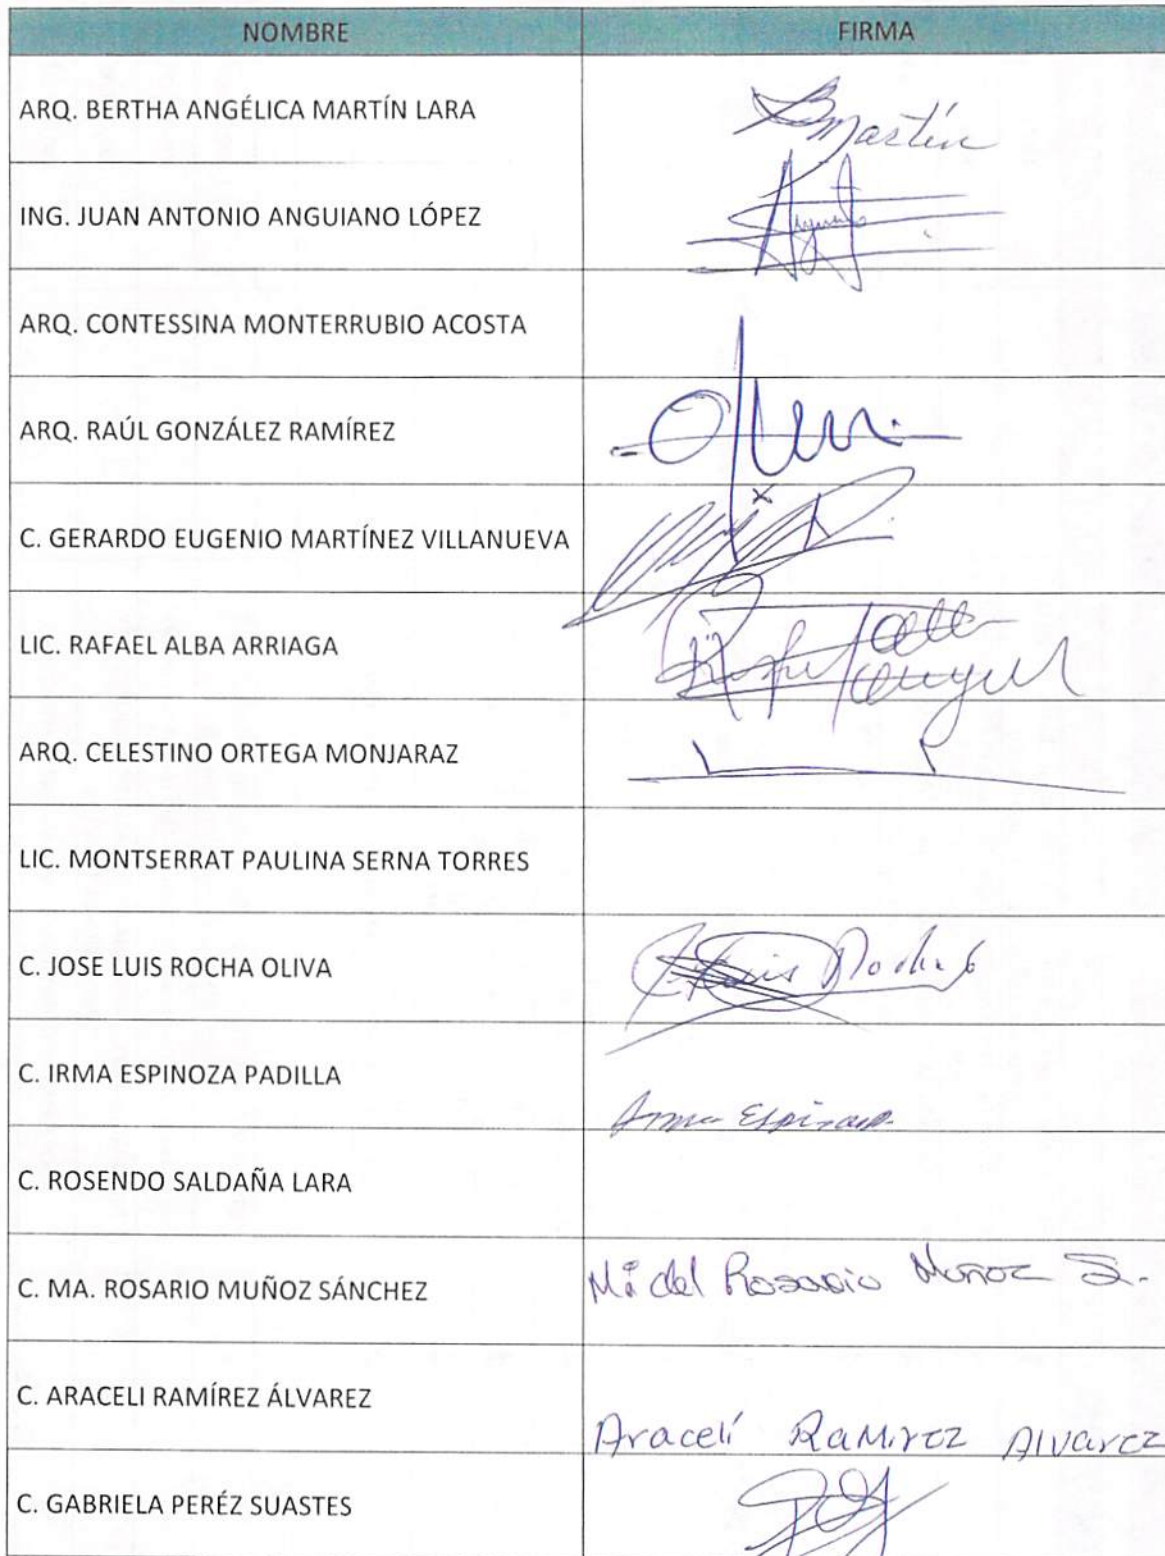 NOMBRE FIRMA
ARQ. BERTHA ANGÉLICA MARTÍN LARA BMartín
ING. JUAN ANTONIO ANGUIANO LÓPEZ
ARQ. CONTESSINA MONTERRUBIO ACOSTA
ARQ. RAÚL GONZÁLEZ RAMÍREZ
C. GERARDO EUGENIO MARTÍNEZ VILLANUEVA
LIC. RAFAEL ALBA ARRIAGA
ARQ. CELESTINO ORTEGA MONJARAZ
LIC. MONTSERRAT PAULINA SERNA TORRES
C. JOSE LUIS ROCHA OLIVA Luis Rocha
C. IRMA ESPINOZA PADILLA
C. ROSENDO SALDAÑA LARA
C. MA. ROSARIO MUÑOZ SÁNCHEZ Ma del Rosario Muñoz S.
C. ARACELI RAMÍREZ ÁLVAREZ Aracelí Ramirez Alvarez
C. GABRIELA PERÉZ SUASTES